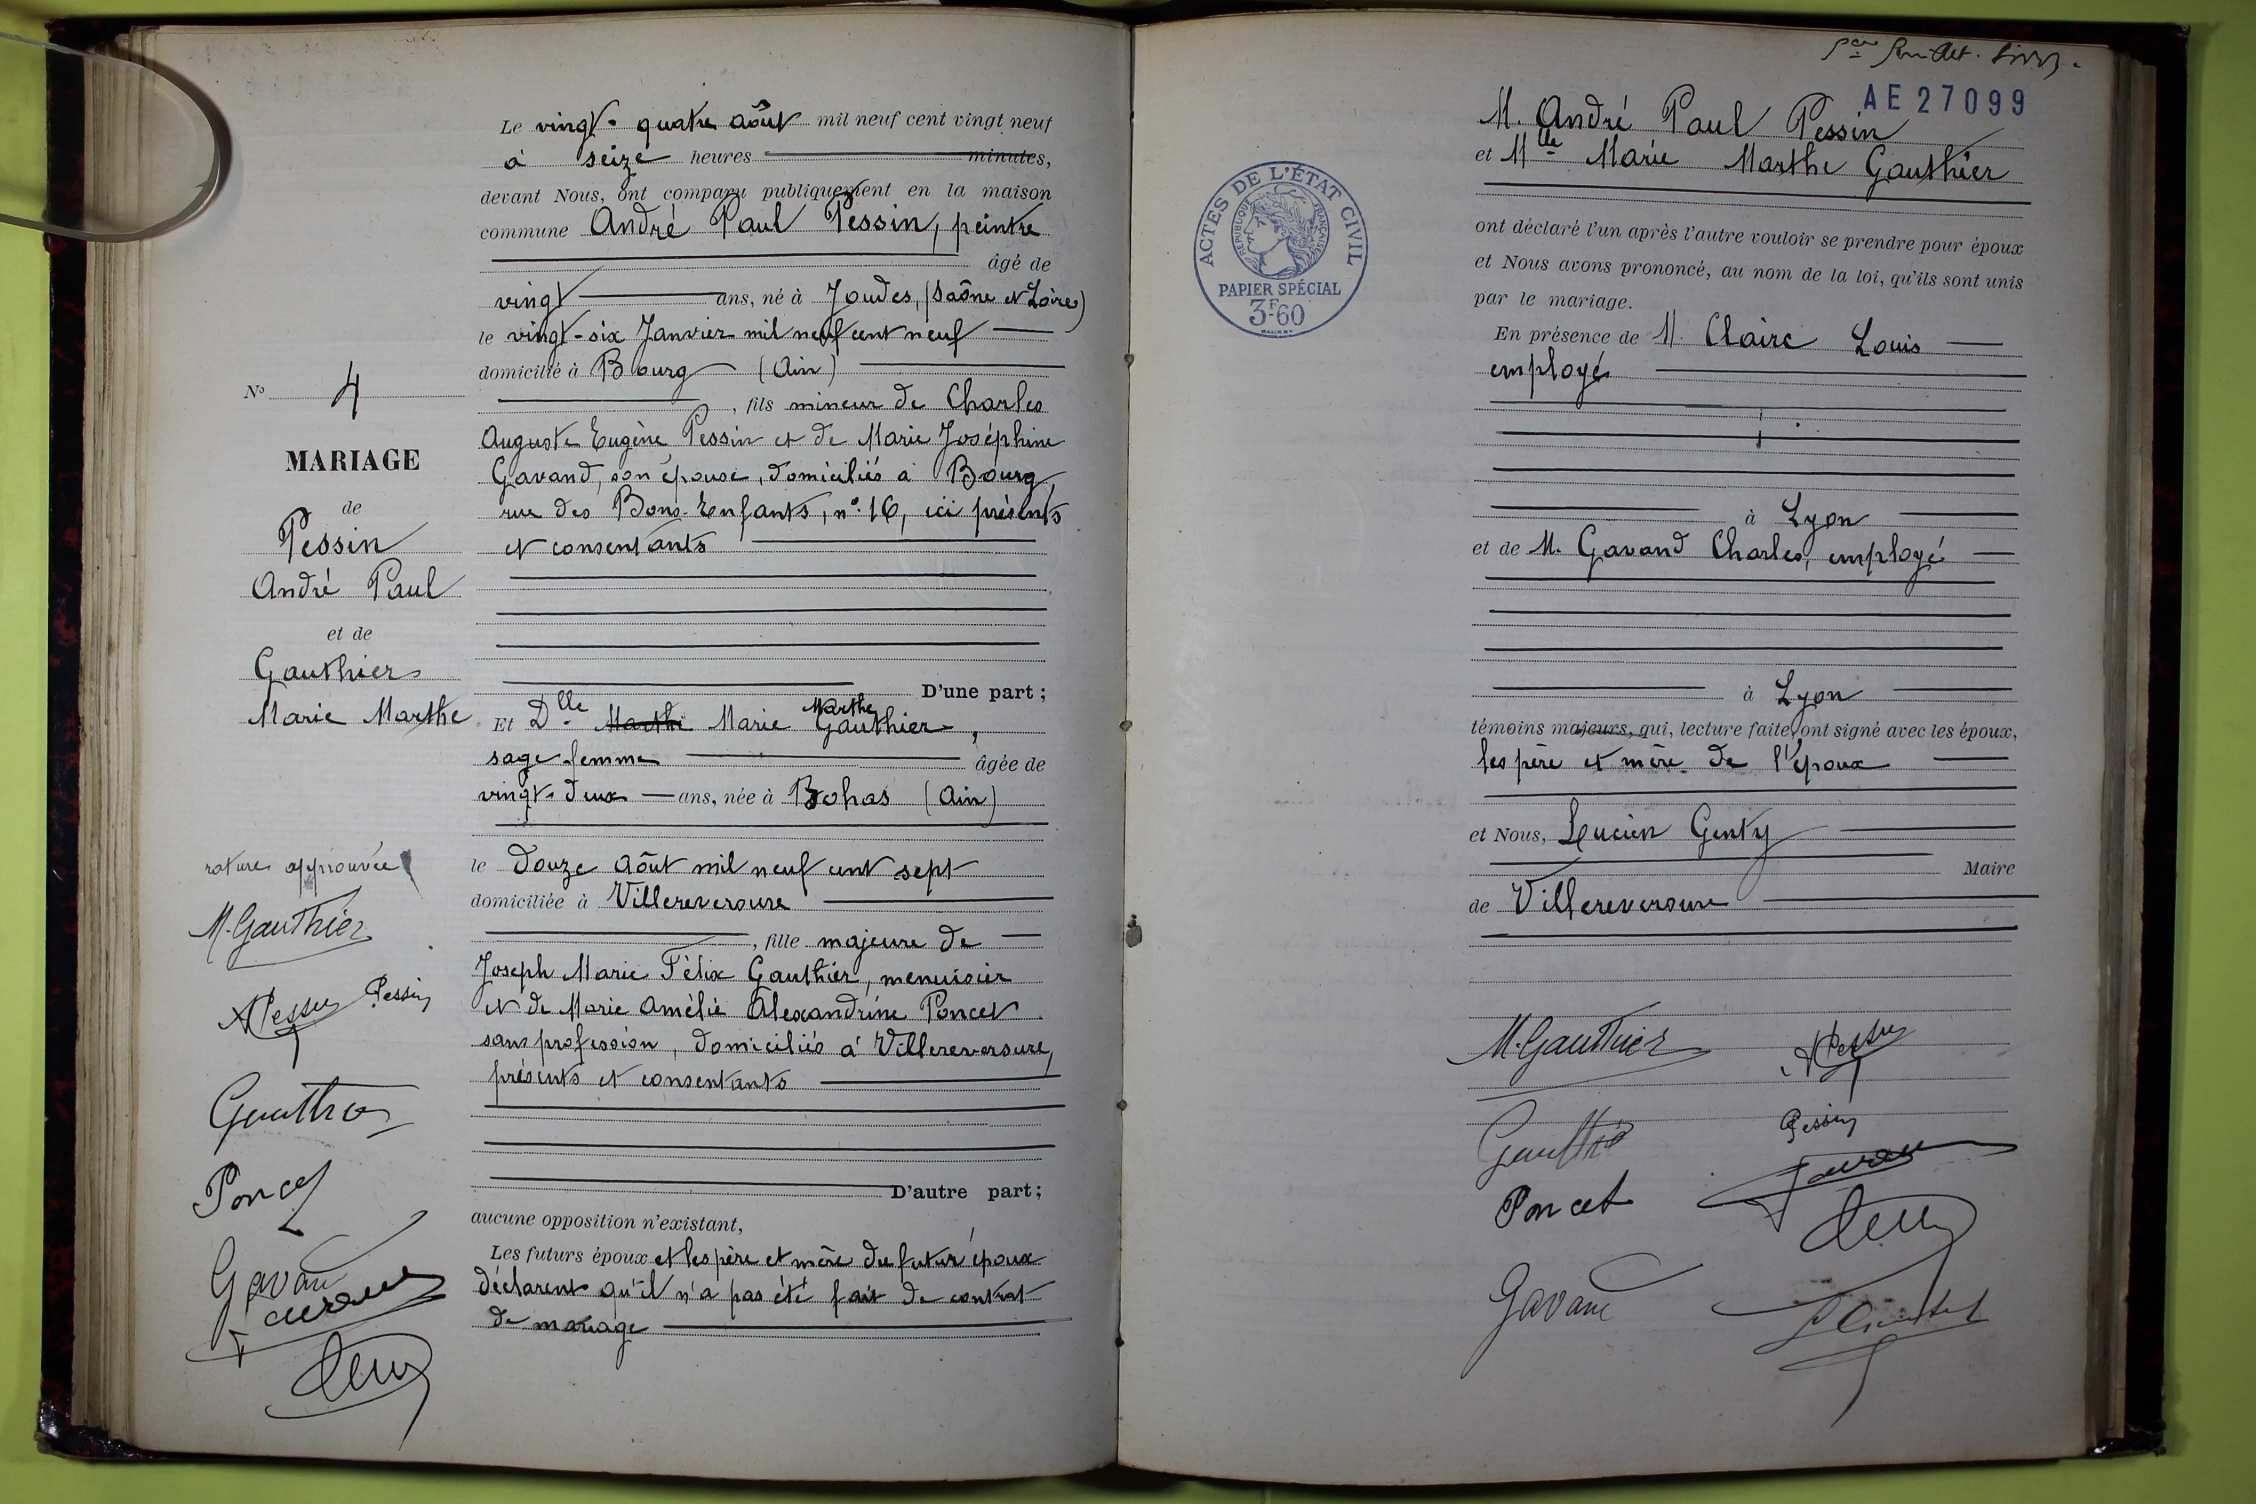 Le vingt-quatre août mil neuf cent vingt neuf
à seize heures minutes,
devant Nous, ont comparu publiquement en la maison
commune André Paul Pessin, peintre
âgé de
vingt ans, né à Joudes, (Saône et Loire)
le vingt-six Janvier mil neuf cent neuf
domicilié à Bourg (Ain)
, fils mineur de Charles
Auguste Eugène Pessin et de Marie Joséphine
Gavand, son épouse, domiciliés à Bourg,
rue des Bons-Enfants, n° 16, ici présents
et consentants
D'une part;
Et Dlle Marthe Marie Marthe Gauthier,
sage-femme âgée de
vingt-deux ans, née à Bohas (Ain)
le douze août mil neuf cent sept
domiciliée à Villereversure
, fille majeure de
Joseph Marie Félix Gauthier, menuisier
et de Marie Amélie Alexandrine Poncet
sans profession, domiciliés à Villereversure,
présents et consentants
D'autre part;
aucune opposition n'existant,
Les futurs époux et les père et mère du futur époux
déclarent qu'il n'a pas été fait de contrat
de mariage
N° 4
MARIAGE
de
Pessin
André Paul
et de
Gauthier
Marie Marthe
rature approuvée
M. Gauthier
Pessin
Poncet
Gavand
AE 27099
M. André Paul Pessin
et Mlle Marie Marthe Gauthier
ACTES DE L'ÉTAT CIVIL
RÉPUBLIQUE FRANÇAISE
PAPIER SPÉCIAL
3F60
ont déclaré l'un après l'autre vouloir se prendre pour époux
et Nous avons prononcé, au nom de la loi, qu'ils sont unis
par le mariage.
En présence de M. Claire Louis
employé
à Lyon
et de M. Gavand Charles, employé
à Lyon
témoins majeurs, qui, lecture faite, ont signé avec les époux,
les père et mère de l'époux
et Nous, Lucien Genty
Maire
de Villereversure
M. Gauthier
Pessin
Poncet
Gavand